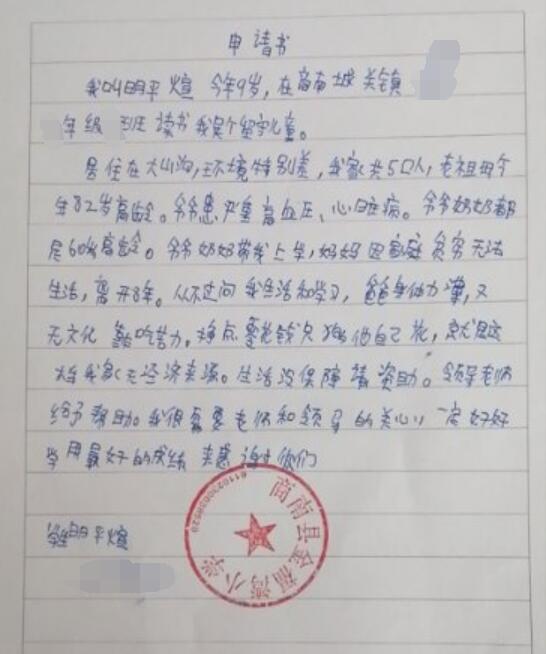 申请书
我叫明平煊 今年9岁，在商南城关镇
年级 班 读书 我是个留守儿童。
居住在大山沟，环境特别差，我家共5口人，老祖母今
年82岁高龄。爷爷患严重高血压、心脏病。爷爷奶奶都
是60岁高龄。爷爷奶奶带我上学，妈妈因家庭贫穷无法
生活，离开8年。从不过问我生活和学习，爸爸身体力薄，又
无文化 靠吃苦力。挣点零花钱只够他自己花，就是这
样我家无经济来源。生活没保障 请资助。领导老师
给予帮助。我很需要老师和领导的关心，一定好好
学 用最好的成绩 来感谢你们
学生明平煊
商南县金福湾小学